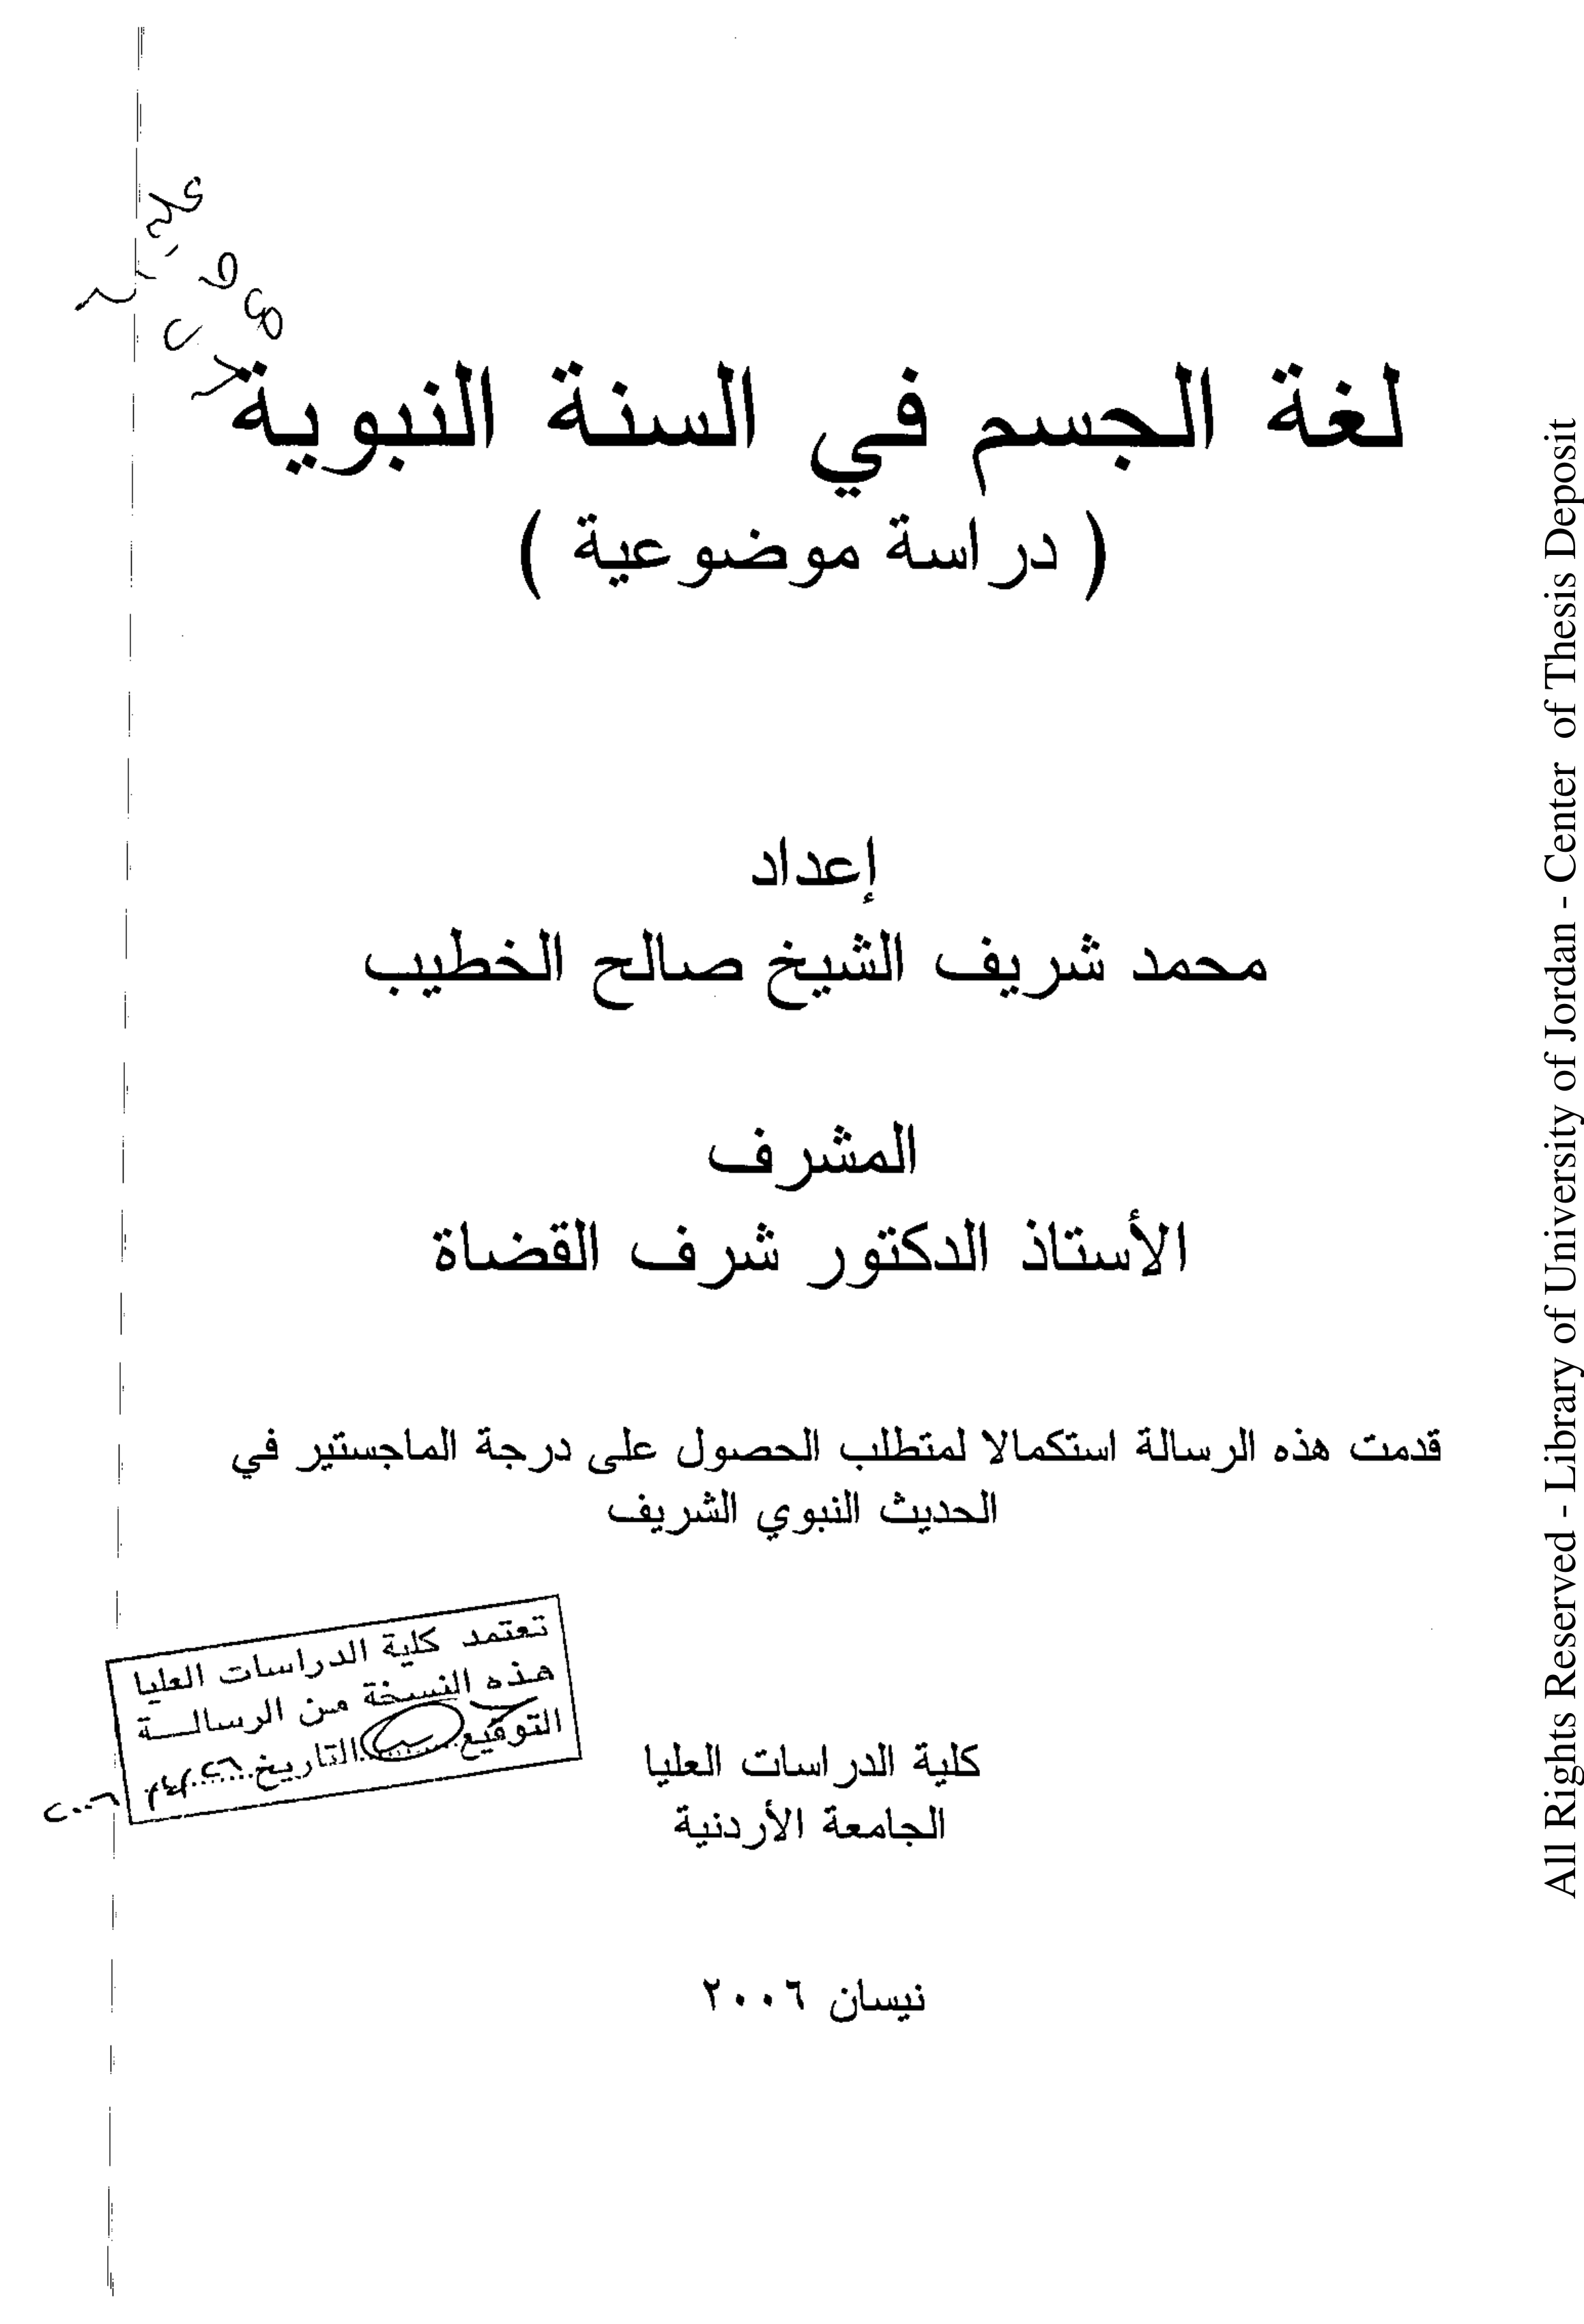 لغة الجسم في السنة النبوية
( دراسة موضوعية )
إعداد
محمد شريف الشيخ صالح الخطيب
المشرف
الأستاذ الدكتور شرف القضاة
قدمت هذه الرسالة استكمالا لمتطلب الحصول على درجة الماجستير في
الحديث النبوي الشريف
تعتمد كلية الدراسات العليا
هذه النسخة من الرسالـــة
التوقيع..........التاريخ........
٢٠٠٦
كلية الدراسات العليا
الجامعة الأردنية
نيسان ٢٠٠٦
All Rights Reserved - Library of University of Jordan - Center of Thesis Deposit